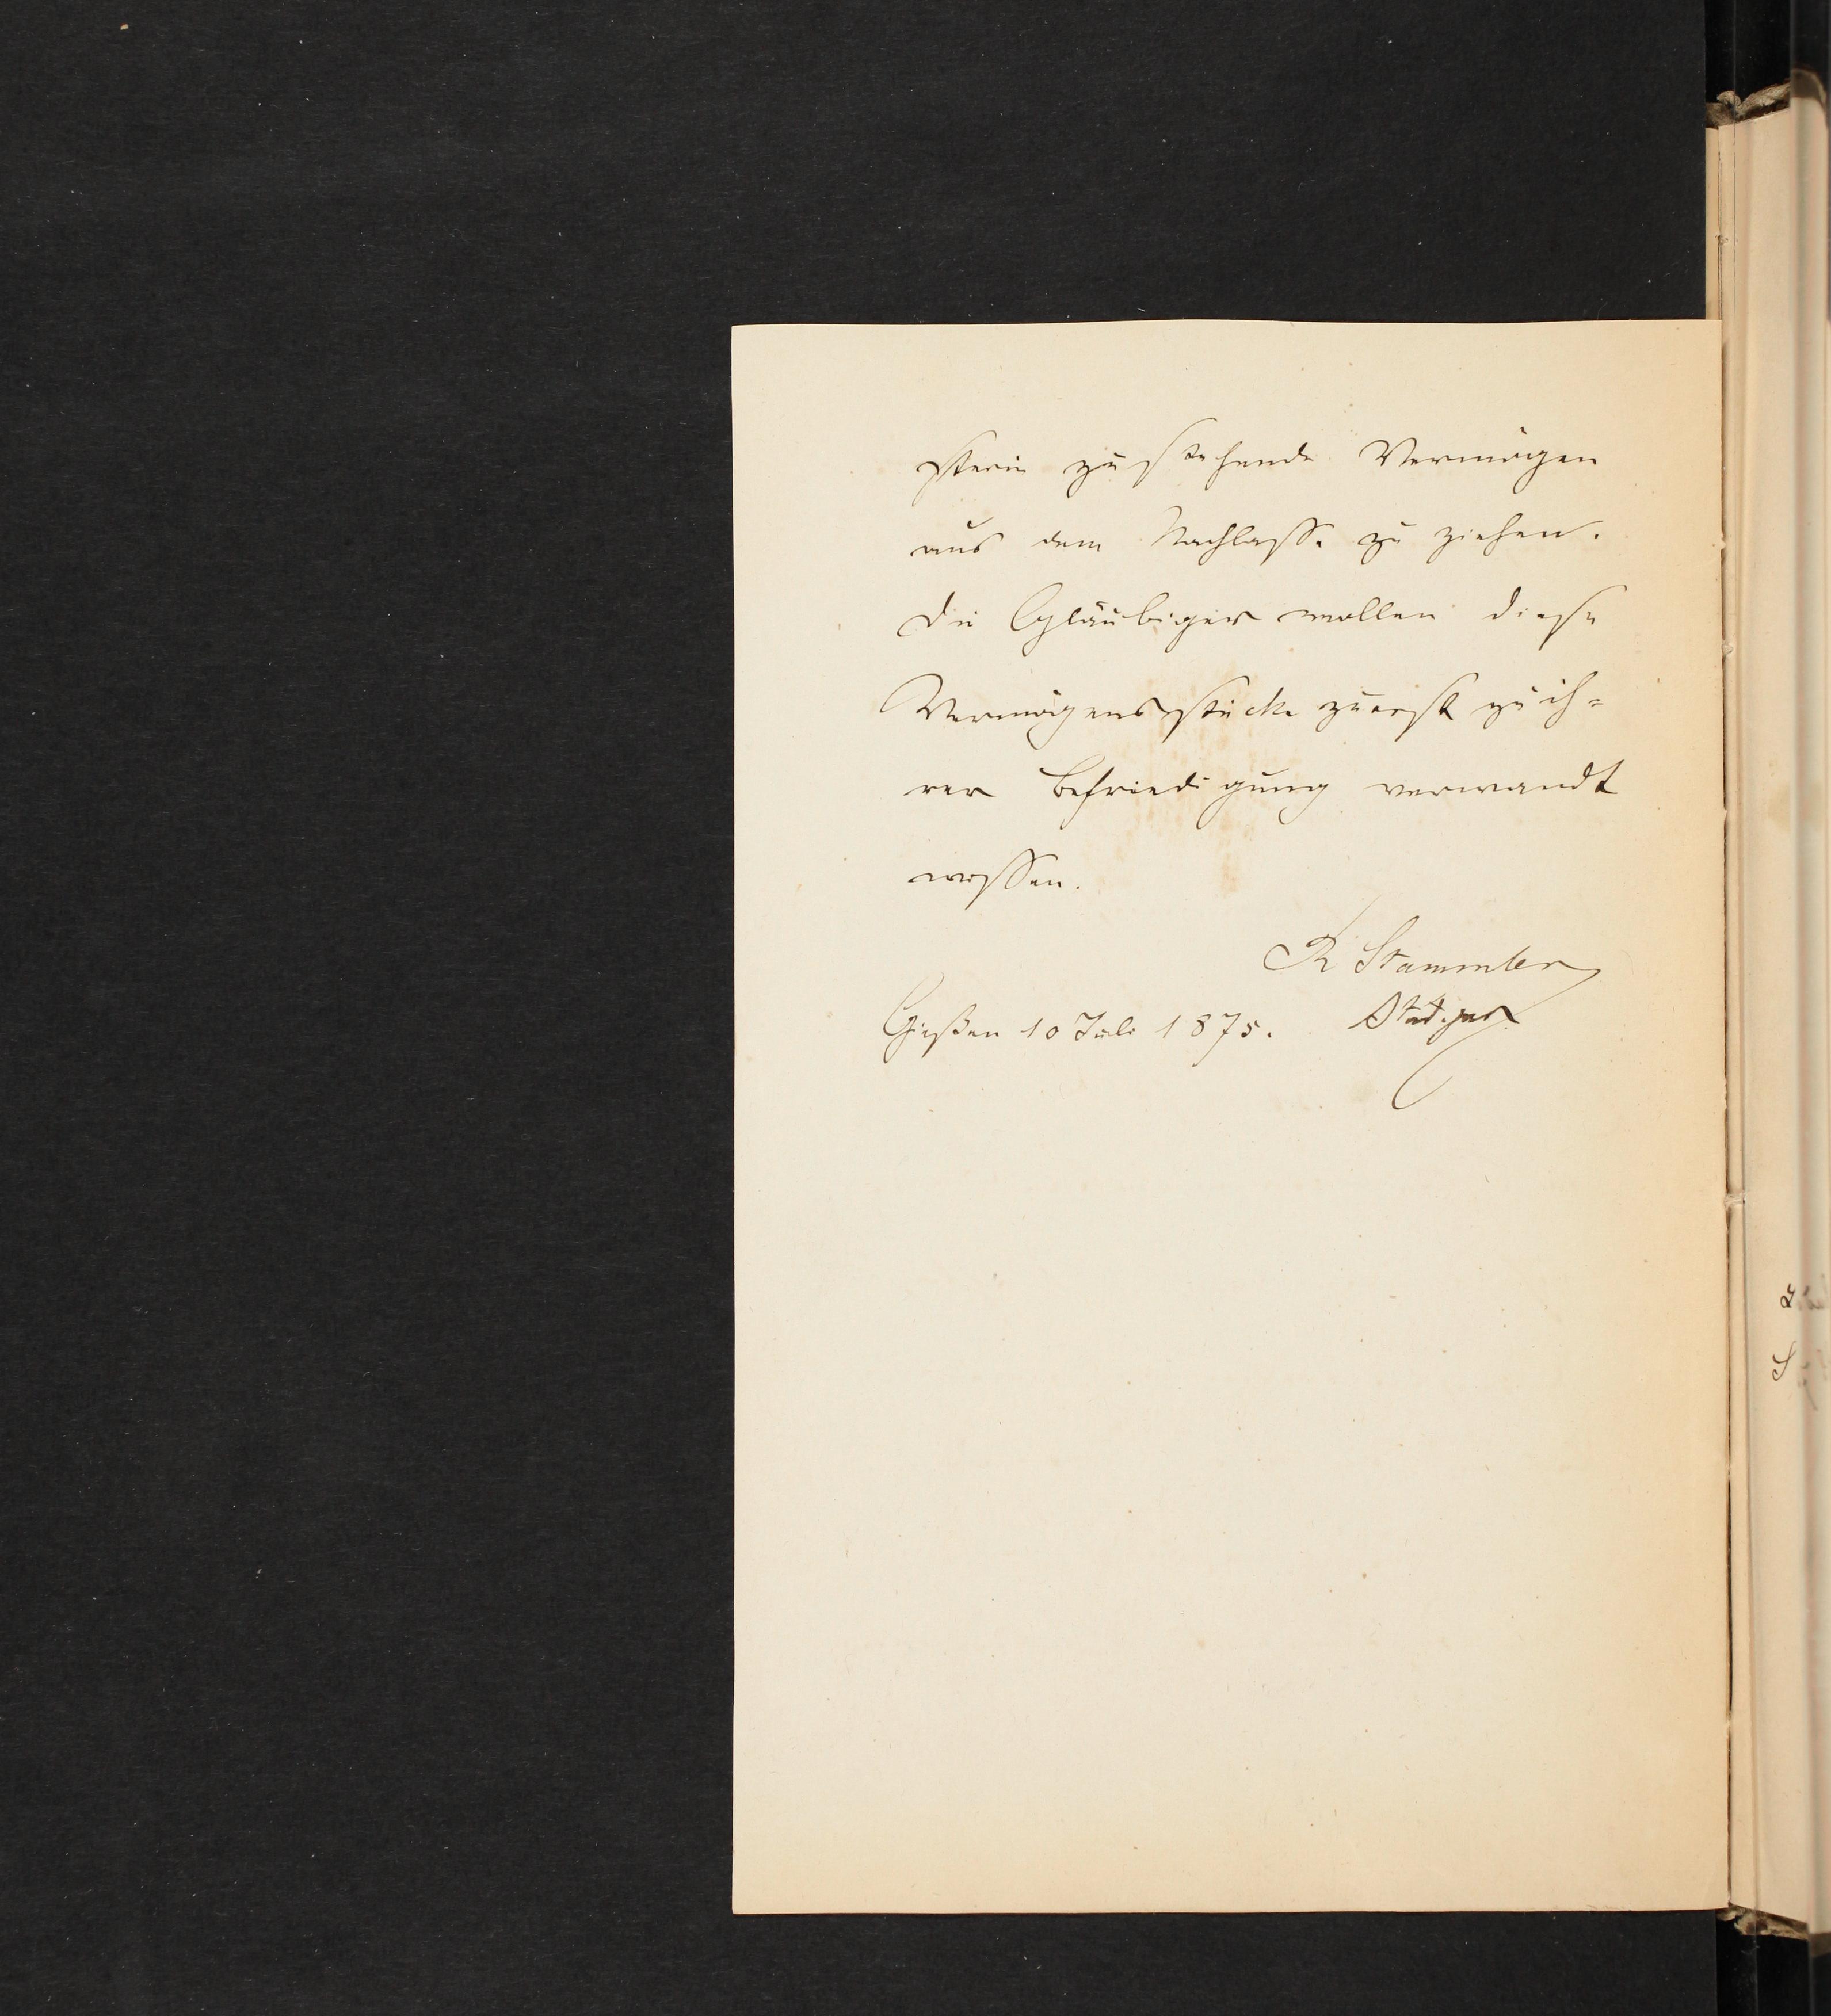 sterin zustehende Vermögen
aus dem Nachlasse zu ziehen.
Die Gläubiger wollen diese
Vermögensstücke zuerst zu ih=
rer Befriedigung verwandt
wissen.
R Stammler
Stud. jur.
Gießen 10 Juli 1875.